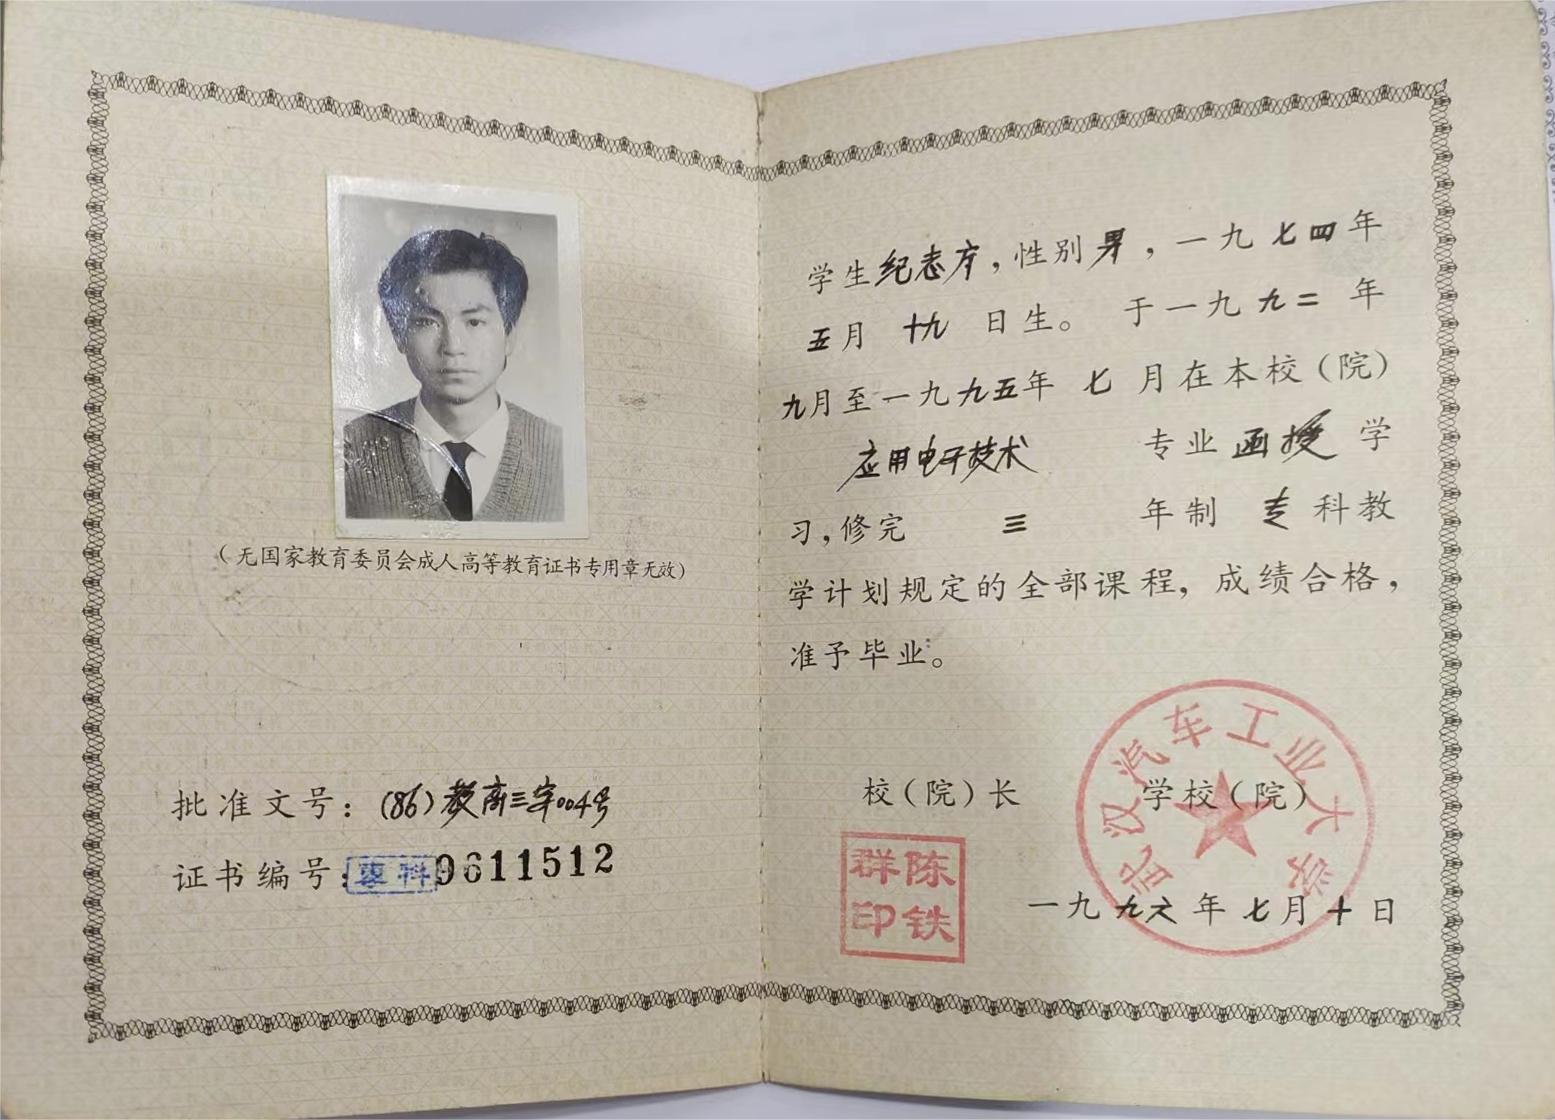 （无国家教育委员会成人高等教育证书专用章无效）
批准文号：(86)教高三字004号
证书编号：专科9611512
学生纪志方，性别男，一九七四年
五月十九日生。于一九九二年
九月至一九九五年七月在本校（院）
应用电子技术专业函授学
习，修完三年制专科教
学计划规定的全部课程，成绩合格，
准予毕业。
校（院）长
学校（院）
陈铁群印
武汉汽车工业大学
一九九六年七月十日